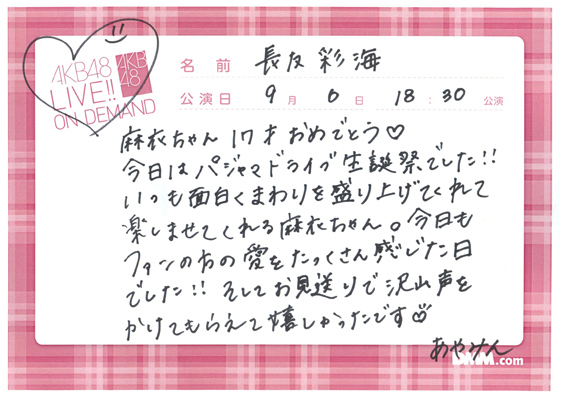 AKB48
LIVE!!
ON DEMAND
AKB
48
名前 長友彩海
公演日 9月6日 18:30公演
麻衣ちゃん17才おめでとう♡
今日はパジャマドライブ生誕祭でした!!
いつも面白くまわりを盛り上げてくれて
楽しませてくれる麻衣ちゃん。今日も
ファンの方の愛をたっくさん感じた日
でした!! そしてお見送りで沢山声を
かけてもらえて嬉しかったです♡
あやみん
DMM.com